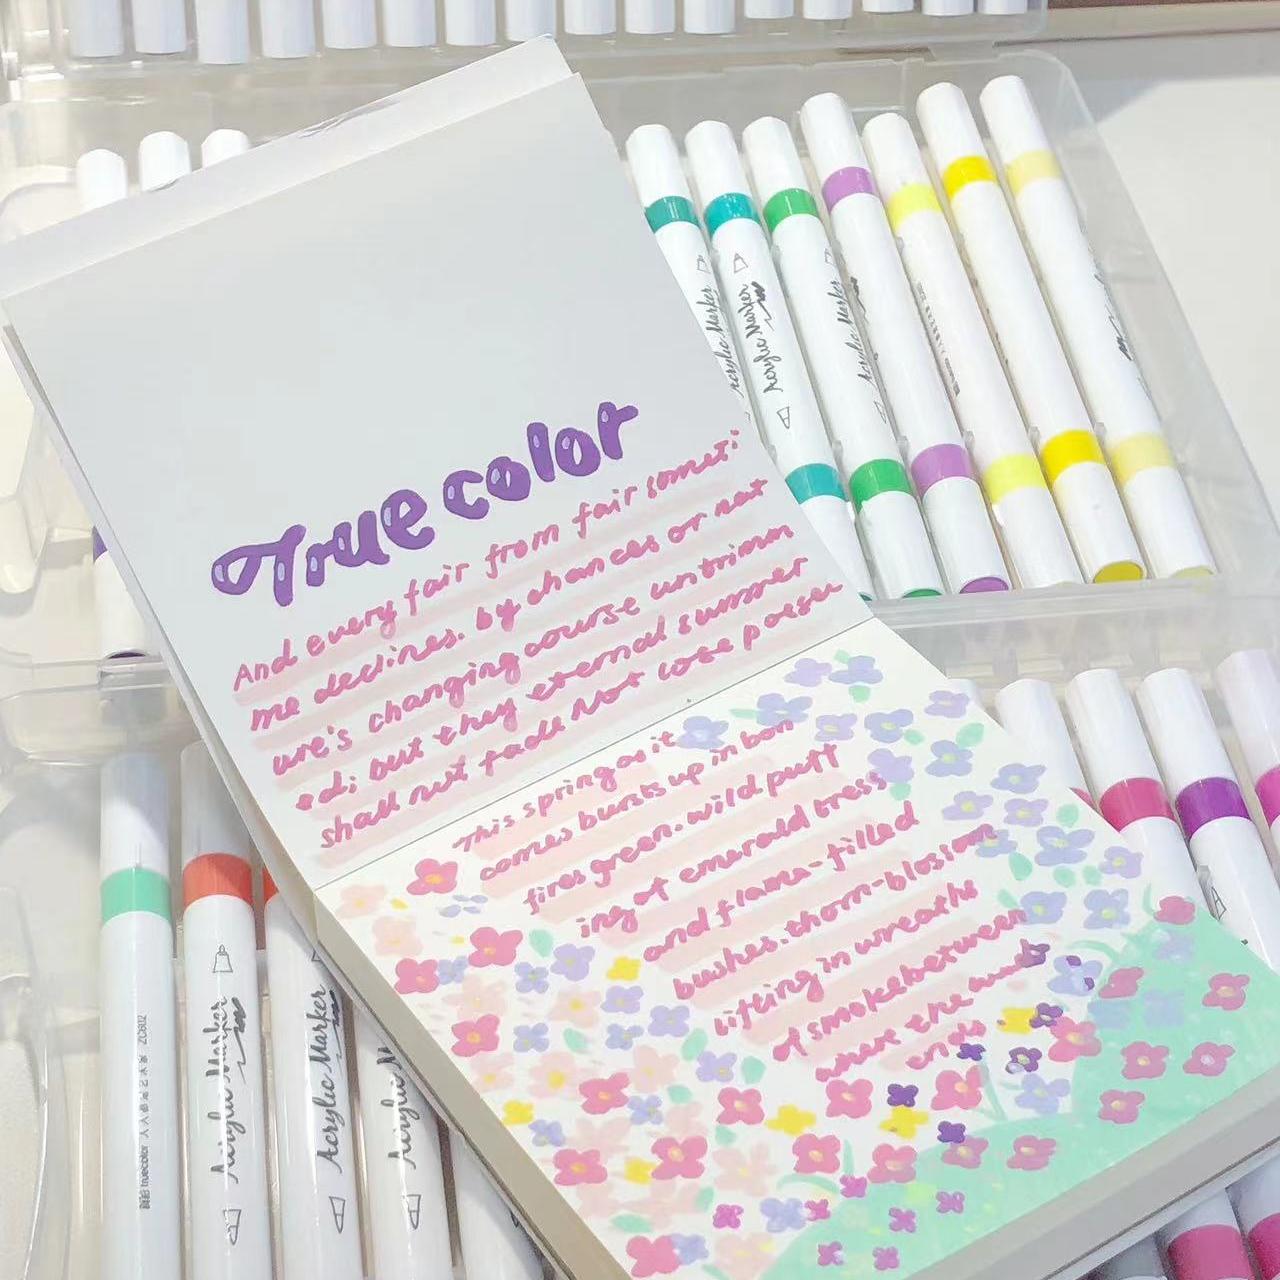 True color
And every fair from fair someti
me declines. by chances or nat
ure's changing course untrimm
ed; but they eternal summer
shall not fade Not lose possen
This spring as it
comes bursts up in bon
fires green. wild puff
ing of emerald tress
and flama-filled
bushes. thorn-blossom
lifting in wreaths
of smoke between
where the
ends
Acrylic Marker
Acrylic Marker
Acrylic Marker
真彩 truecolor 人人都是艺术家 ZC802
Acrylic Marker
Acrylic Marker
Acrylic Marker